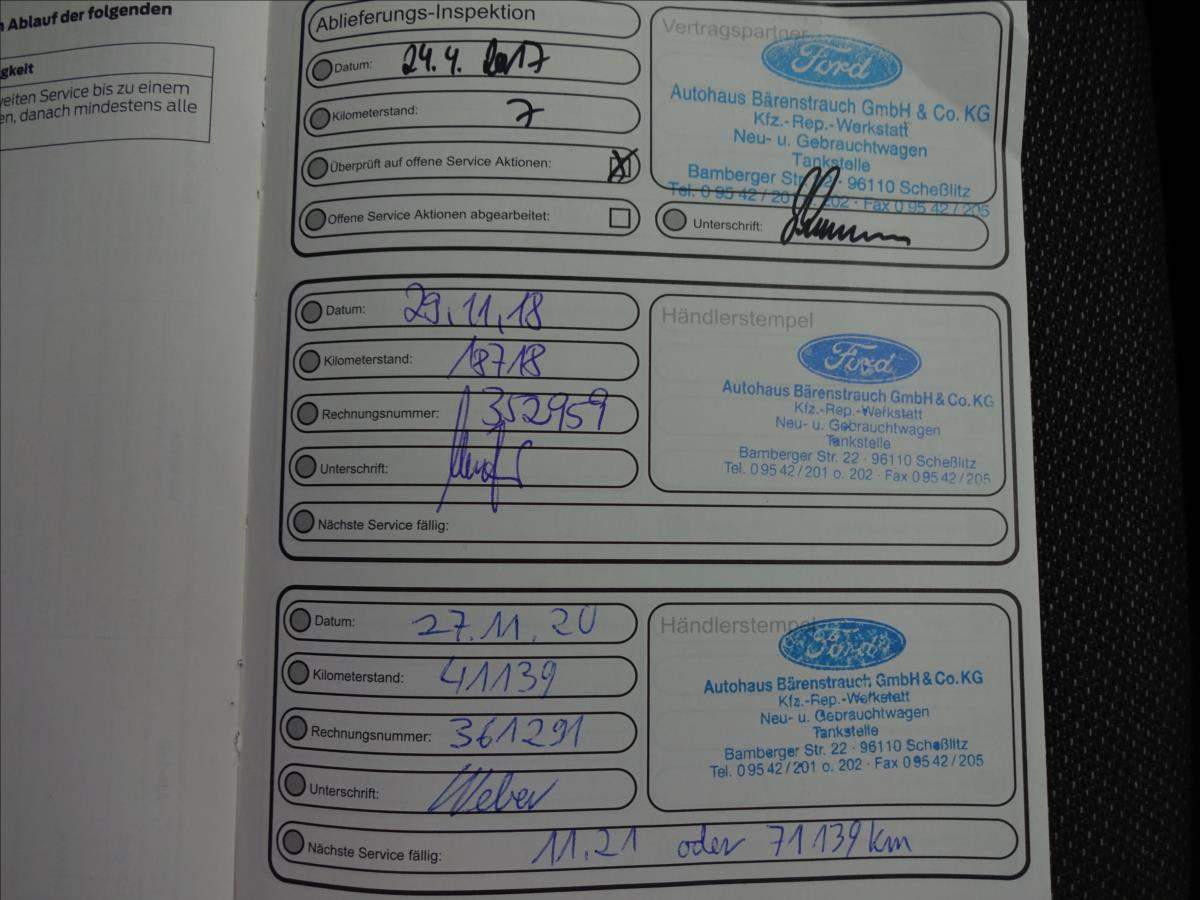 n Ablauf der folgenden
gkeit
weiten Service bis zu einem
en, danach mindestens alle
Ablieferungs-Inspektion
Datum: 24.4.2017
Kilometerstand: 7
Überprüft auf offene Service Aktionen: X
Offene Service Aktionen abgearbeitet:
Vertragspartner
Ford
Autohaus Bärenstrauch GmbH & Co. KG
Kfz.-Rep.-Werkstatt
Neu- u. Gebrauchtwagen
Tankstelle
Bamberger Str. 22 · 96110 Scheßlitz
Tel. 0 95 42 / 201 o. 202 · Fax 0 95 42 / 205
Unterschrift:
Datum: 29.11.18
Kilometerstand: 18718
Rechnungsnummer: 352959
Unterschrift:
Nächste Service fällig:
Händlerstempel
Ford
Autohaus Bärenstrauch GmbH & Co. KG
Kfz.-Rep.-Werkstatt
Neu- u. Gebrauchtwagen
Tankstelle
Bamberger Str. 22 · 96110 Scheßlitz
Tel. 0 95 42 / 201 o. 202 · Fax 0 95 42 / 205
Datum: 27.11.20
Kilometerstand: 41139
Rechnungsnummer: 361291
Unterschrift: Weber
Händlerstempel
Ford
Autohaus Bärenstrauch GmbH & Co. KG
Kfz.-Rep.-Werkstatt
Neu- u. Gebrauchtwagen
Tankstelle
Bamberger Str. 22 · 96110 Scheßlitz
Tel. 0 95 42 / 201 o. 202 · Fax 0 95 42 / 205
Nächste Service fällig: 11.21 oder 71139 km